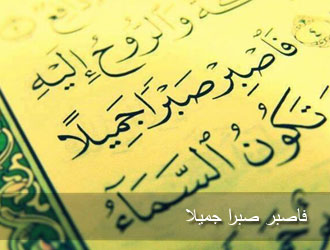 وَالرُّوحُ إِلَيْهِ
فَاصْبِرْ صَبْرًا جَمِيلًا
تَكُونُ السَّمَاءُ
فاصبر صبرا جميلا